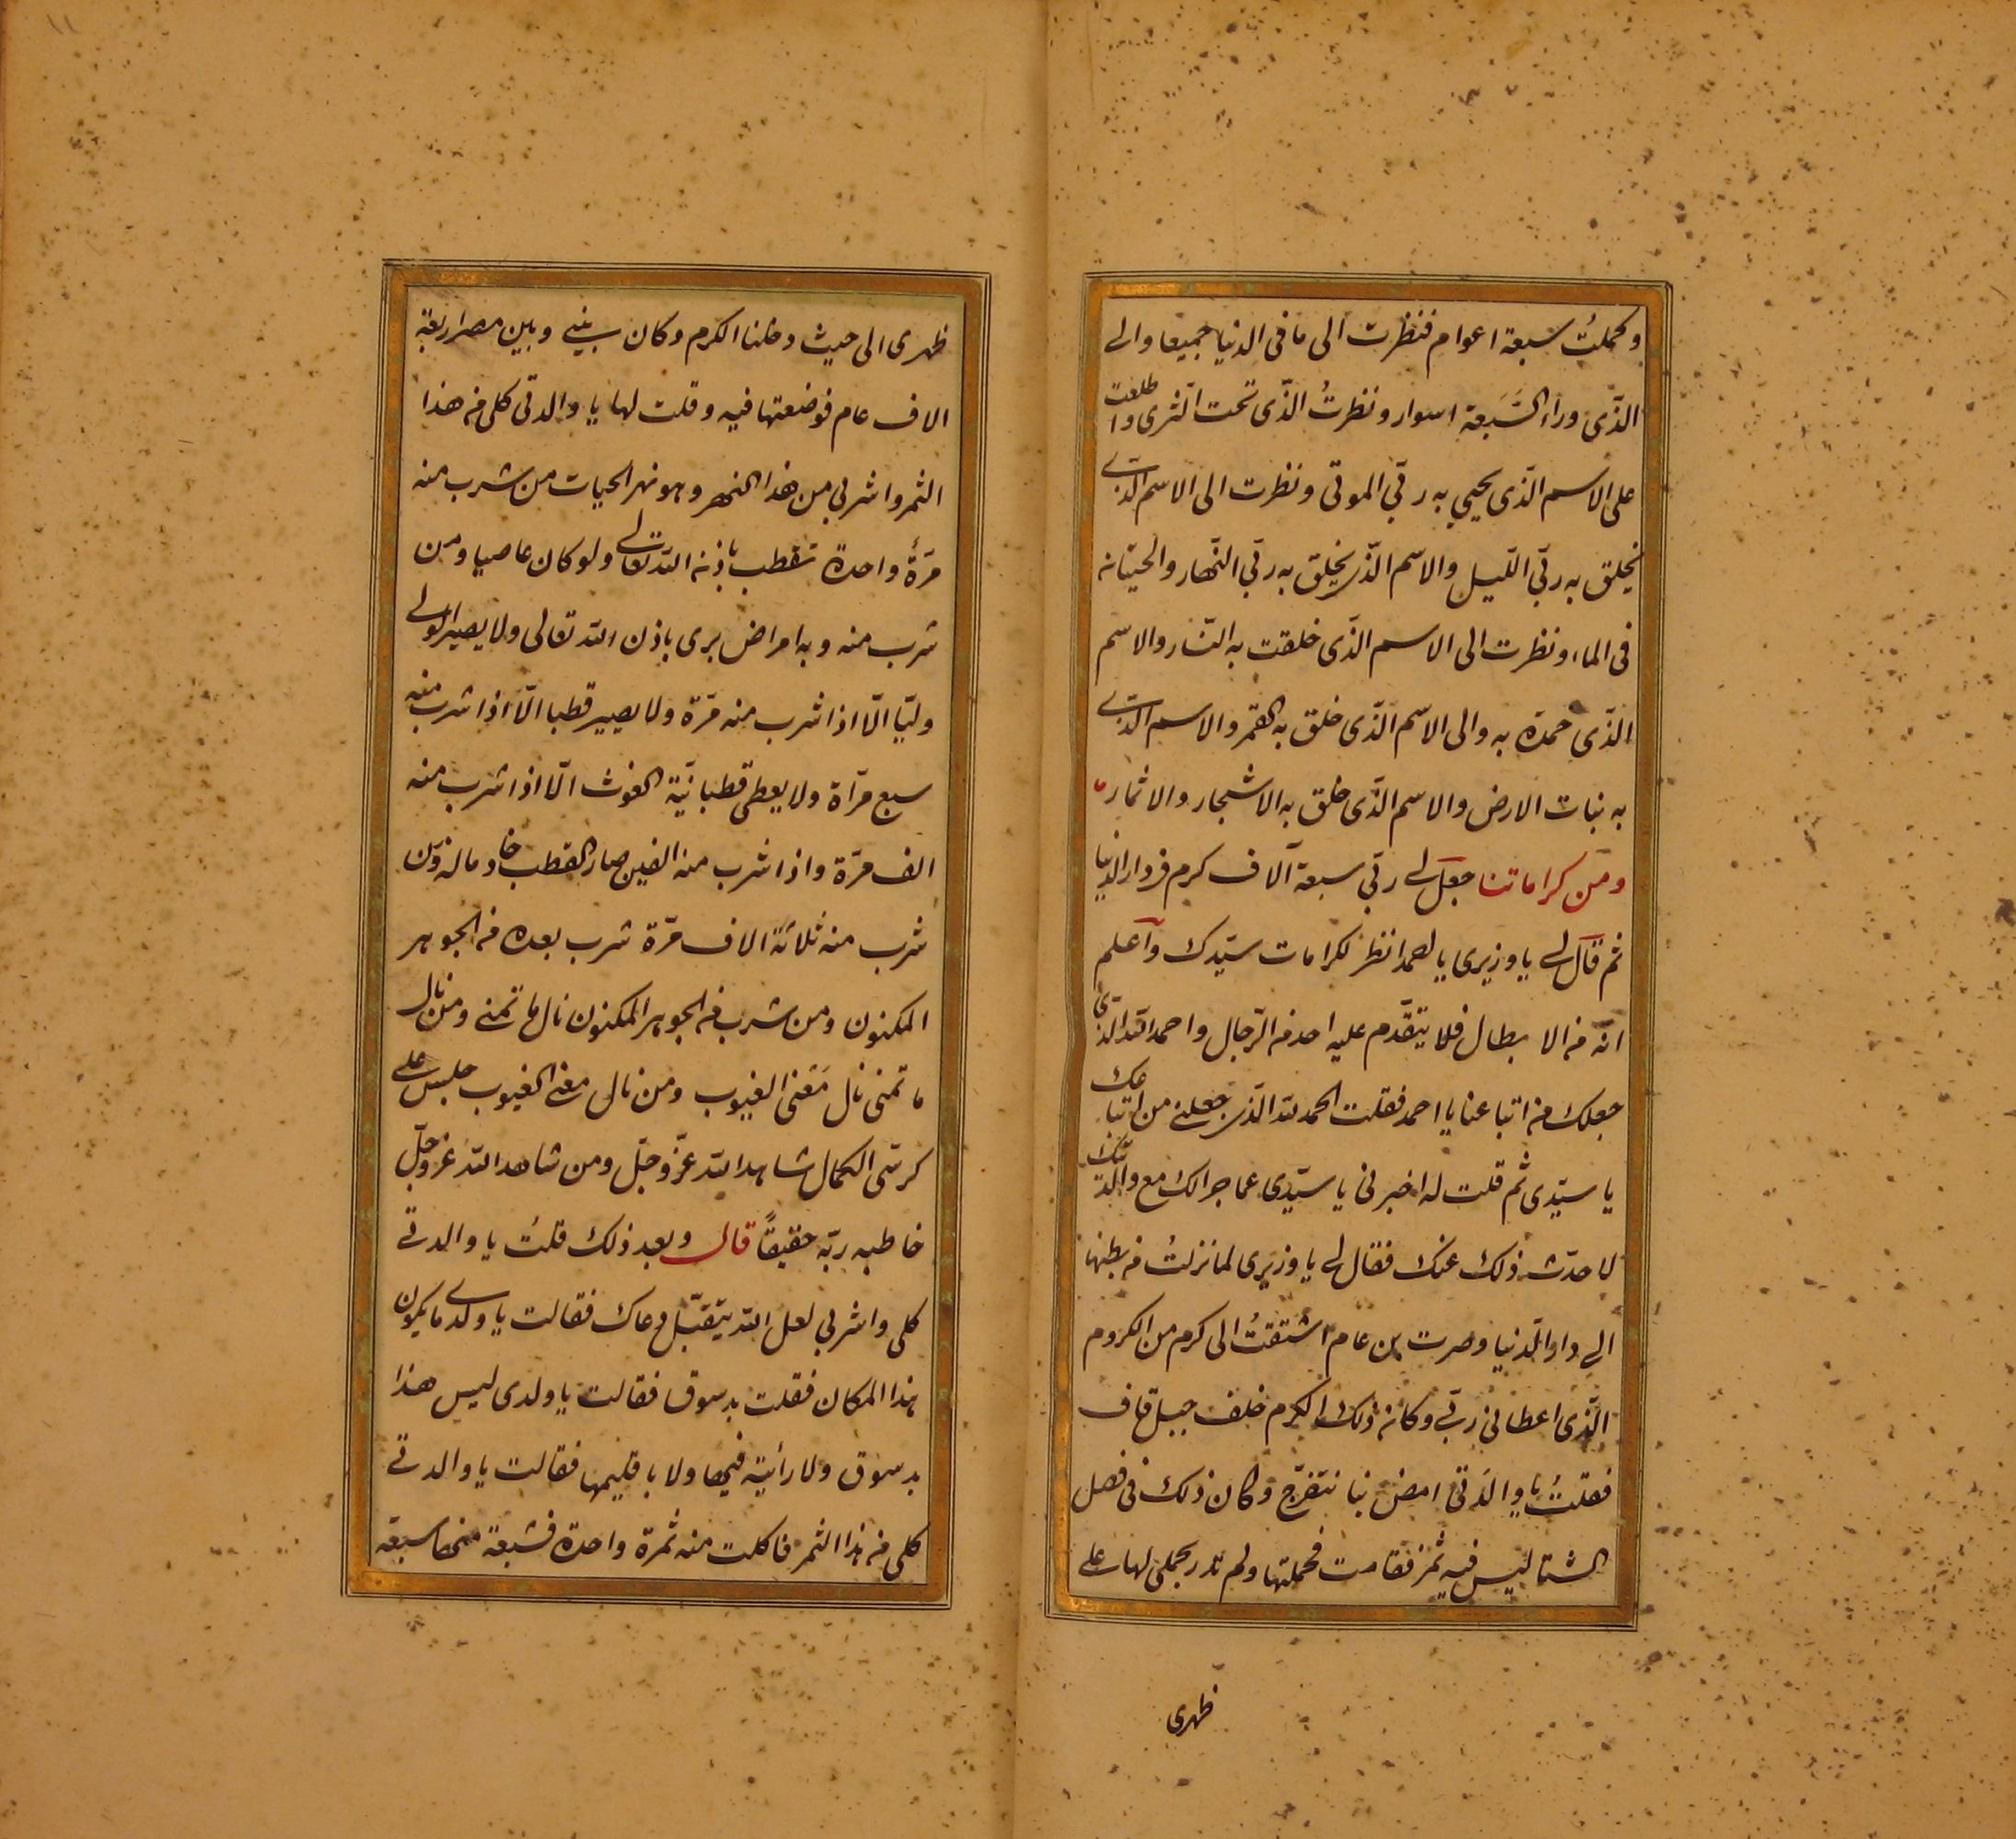 وكملتُ سبعة اعوام فنظرت الى ما فى الدنيا جميعا والى
الذّى وراء السَّبعة اسوار ونظرتُ الذّى تحت الثرى واطلعت
على الاسم الذّى يحيي به ربّي الموتى ونظرت الى الاسم الذّى
يخلق به ربّي اللّيل والاسم الذّى يخلق به ربّي النّهار والحيتان
فى الماء ونظرت الى الاسم الذّى خلقت به النّار والاسم
الذّى خمدة به والى الاسم الذّى خلق به القمر والاسم الذّى
به نبات الارض والاسم الذّى خلق به الاشجار والاثمار
ومن كراماتنا جعل لى ربّي سبعة آلاف كرم فى دار الدنيا
ثم قال لى يا وزيرى يا احمد انظر لكرامات سيّدك وآعلم
انّه من الابطال فلا يتقدّم عليه احد من الرّجال واحمد الله الذى
جعلك من اتباعنا يا احمد فقلت الحمد لله الذّى جعلنى من اتباعك
يا سيّدى ثم قلت له اخبرنى يا سيّدى عما جرالك مع والدتك
لاحدّث ذلك عنك فقال لى يا وزيرى لما نزلتُ من بطنها
الى دار الدّنيا وصرت بن عام اشتقتُ الى كرم من الكروم
الذّى اعطانى ربّى وكان ذلك الكرم خلف جبل قاف
فقلتُ يا والدَتى امض بنا نتفرّج وكان ذلك فى فصل
الشتا ليس فيه ثمر فقامت فحملتها ولم تدر بحملى لها على
ظهرى
ظهرى الى حيث دخلنا الكرم وكان بينى وبين مصر اربعة
الاف عام فوضعتها فيه وقلت لها يا والدتى كلى من هذا
الثمر واشربى من هذا النهر وهو نهر الحيات من شرب منه
مرّةً واحدة تقطب باذن الله تعالى ولو كان عاصيا ومن
شرب منه وبه امراض برى باذن الله تعالى ولا يصير الولى
وليّا الّا اذا شرب منه مرّة ولا يصير قطبا الّا اذا شرب منه
سبع مرّاة ولا يعطى قطبانيّة الغوث الّا اذا شرب منه
الف مرّة واذا شرب منه الفين صار القطب خادما له ومن
شرب منه ثلاثة الاف مرّة شرب بعده من الجوهر
المكنون ومن شرب من الجوهر المكنون نال ما تمنى ومن نال
ما تمنى نال مَعنى الغيوب ومن نال معنى الغيوب جلس على
كرسّى الكمال شاهد الله عزّ وجلّ ومن شاهد الله عزّ وجلّ
خاطبه ربّه حقيقاً قال وبعد ذلك قلتُ يا والدتى
كلى واشربى لعل الله يتقبّل دعاك فقالت يا ولدى ما يكون
هذا المكان فقلت بدسوق فقالت يا ولدى ليس هذا
بدسوق ولا رأيته فيها ولا باقليمها فقالت يا والدتى
كلى من هذا الثمر فاكلت منه ثمرة واحدة فشبعة منها سبعة